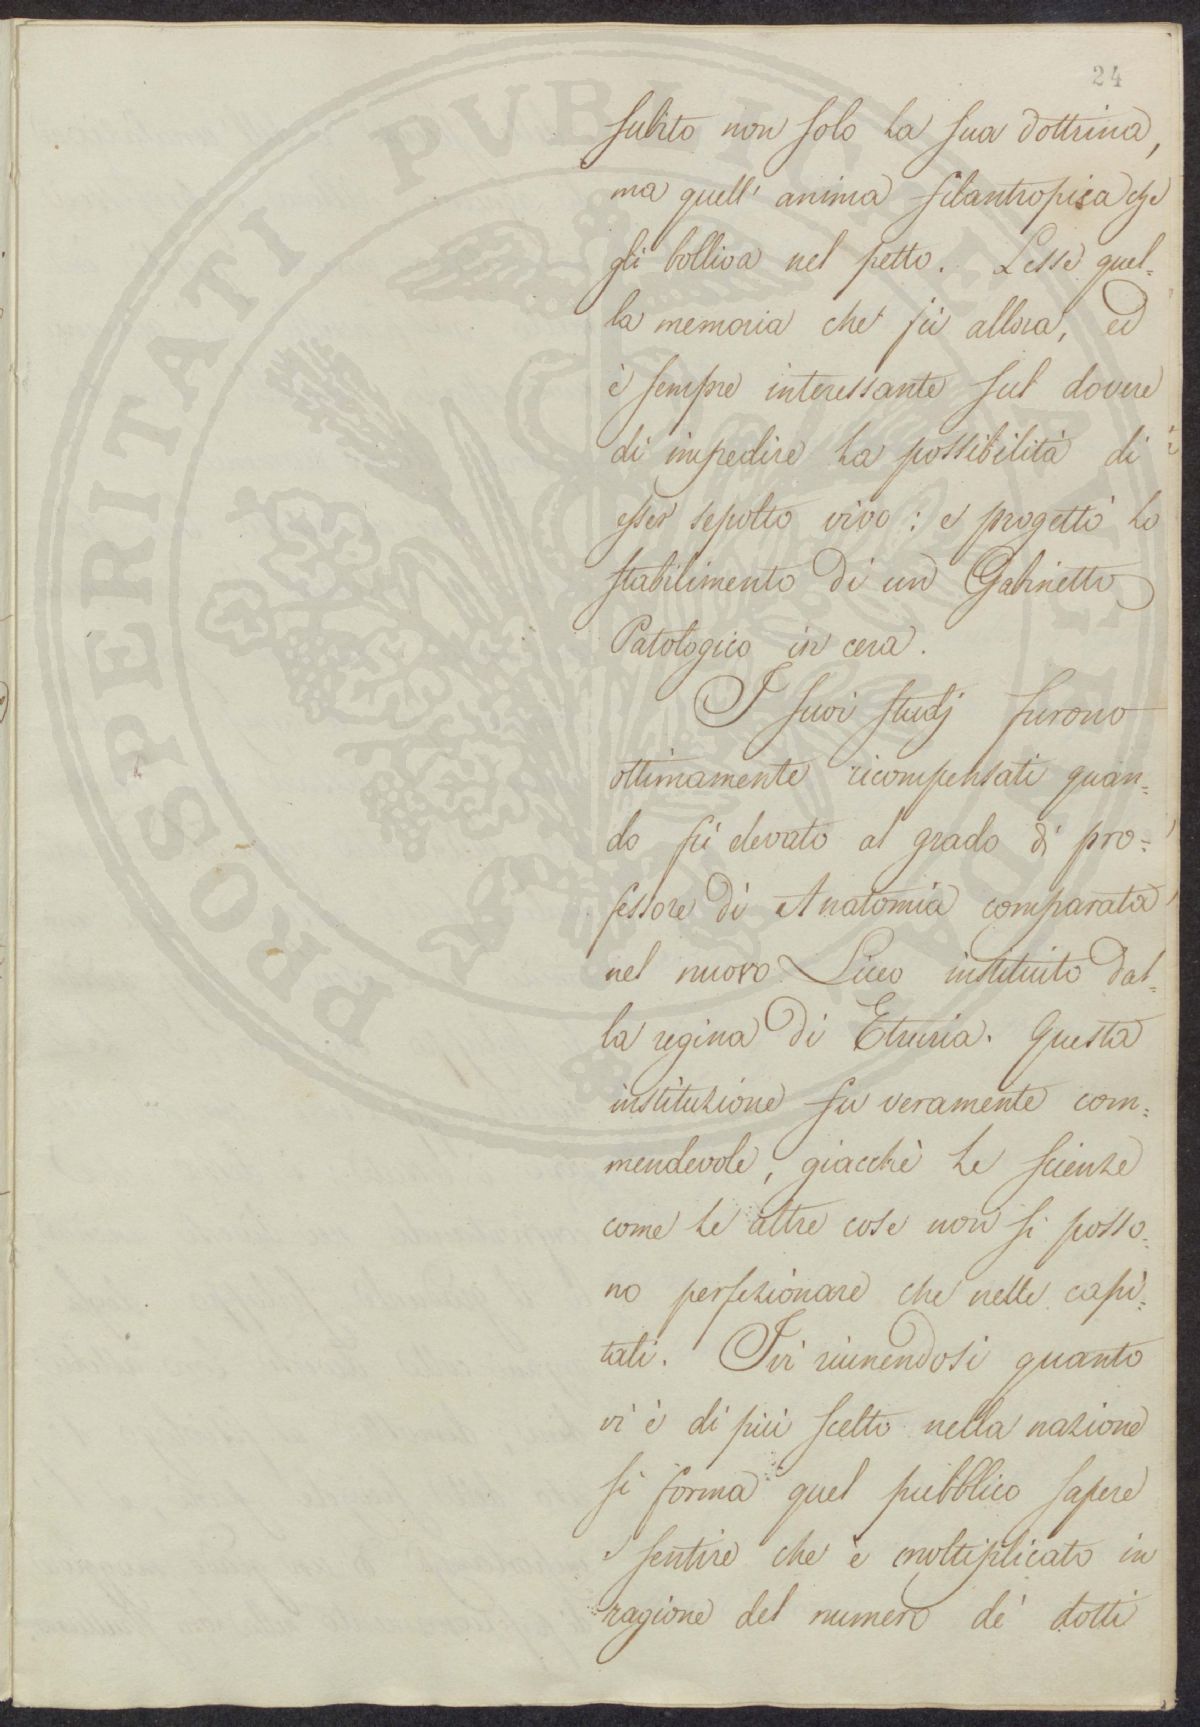 24
subito non solo la sua dottrina,
ma quell' anima filantropica che
gli bolliva nel petto. Lesse quel=
la memoria che fù allora, ed
è sempre interessante sul dovere
di impedire la possibilità di
esser sepolto vivo: e progettò lo
stabilimento di un Gabinetto
Patologico in cera.
I suoi studj furono
ottimamente ricompensati quan=
do fù elevato al grado di pro=
fessore di Anatomia comparata
nel nuovo Liceo instituito dal=
la regina di Etruria. Questa
instituzione fu veramente com=
mendevole, giacchè le scienze
come le altre cose non si posso=
no perfezionare che nelle capi=
tali. Ivi riunendosi quanto
vi è di più scelto nella nazione
si forma quel pubblico sapere
e sentire che è moltiplicato in
ragione del numero de' dotti
PROSPERITATI PVBLICAE